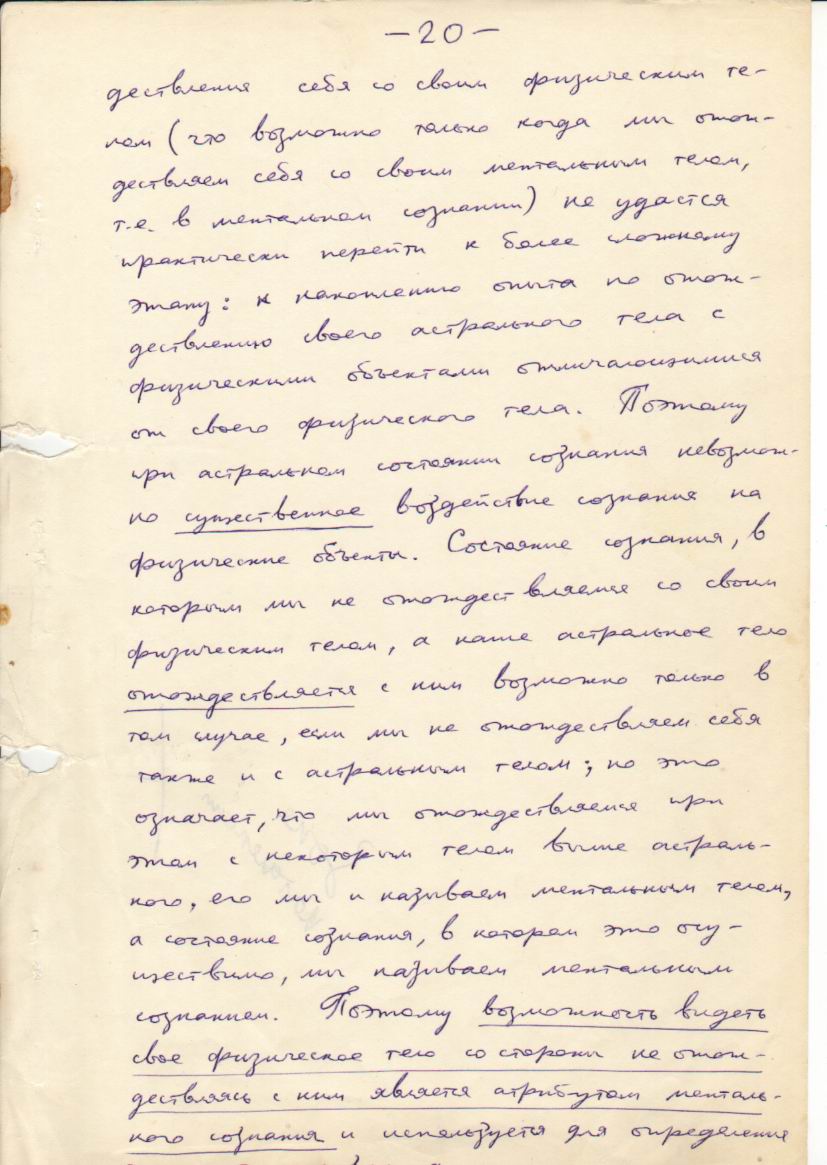 —20—
дествления себя со своим физическим те-
лом (что возможно только когда мы отож-
дествляем себя со своим ментальным телом,
т.е. в ментальном сознании) не удастся
практически перейти к более сложному
этапу: к накоплению опыта по отож-
дествлению своего астрального тела с
физическими объектами отличающимися
от своего физического тела. Поэтому
при астральном состоянии сознания невозмож-
но существенное воздействие сознания на
физические объекты. Состояние сознания, в
которым мы не отождествляемся со своим
физическим телом, а наше астральное тело
отождествляется с ним возможно только в
том случае, если мы не отождествляем себя
также и с астральным телом; но это
означает, что мы отождествляемся при
этом с некоторым телом выше астраль-
ного, его мы и называем ментальным телом,
а состояние сознания, в котором это осу-
ществимо, мы называем ментальным
сознанием. Поэтому возможность видеть
свое физическое тело со стороны не отож-
дествляясь с ним является атрибутом менталь-
ного сознания и используется для определения